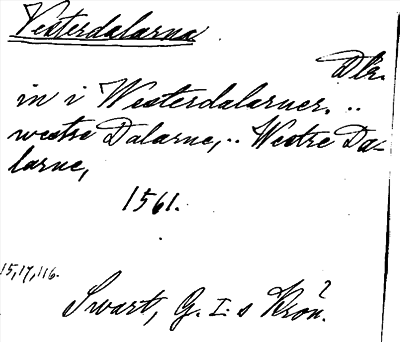 Vesterdalarna
Dlr.
in i Westerdalarner, ..
westre Dalarne, .. Westre Da-
larne,
1561.
15, 17, 116.
Swart, G. I:s Krön.